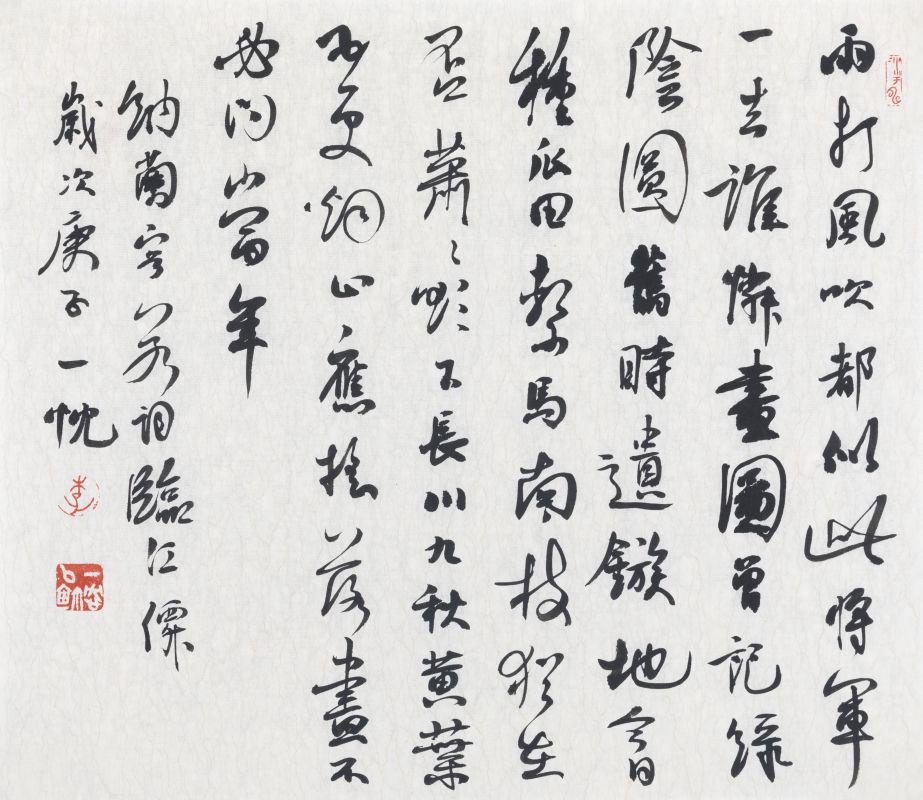 雨打風吹都似此將軍
一去誰憐畫圖曾記綠
陰圓舊時遺鏃地今日
種瓜田繫馬南枝猶在
否蕭〻欲下長川九秋黄葉
五更烟止應摇落盡不
必問當年
納蘭容若詞臨江僊
歲次庚子一忱
李